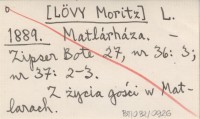 [LÖVY Moritz] L.
1889. Matlárháza. –
Zipser Bote 27, nr 36: 3;
nr 37: 2-3.
Z życia gości w Mat-
larach.